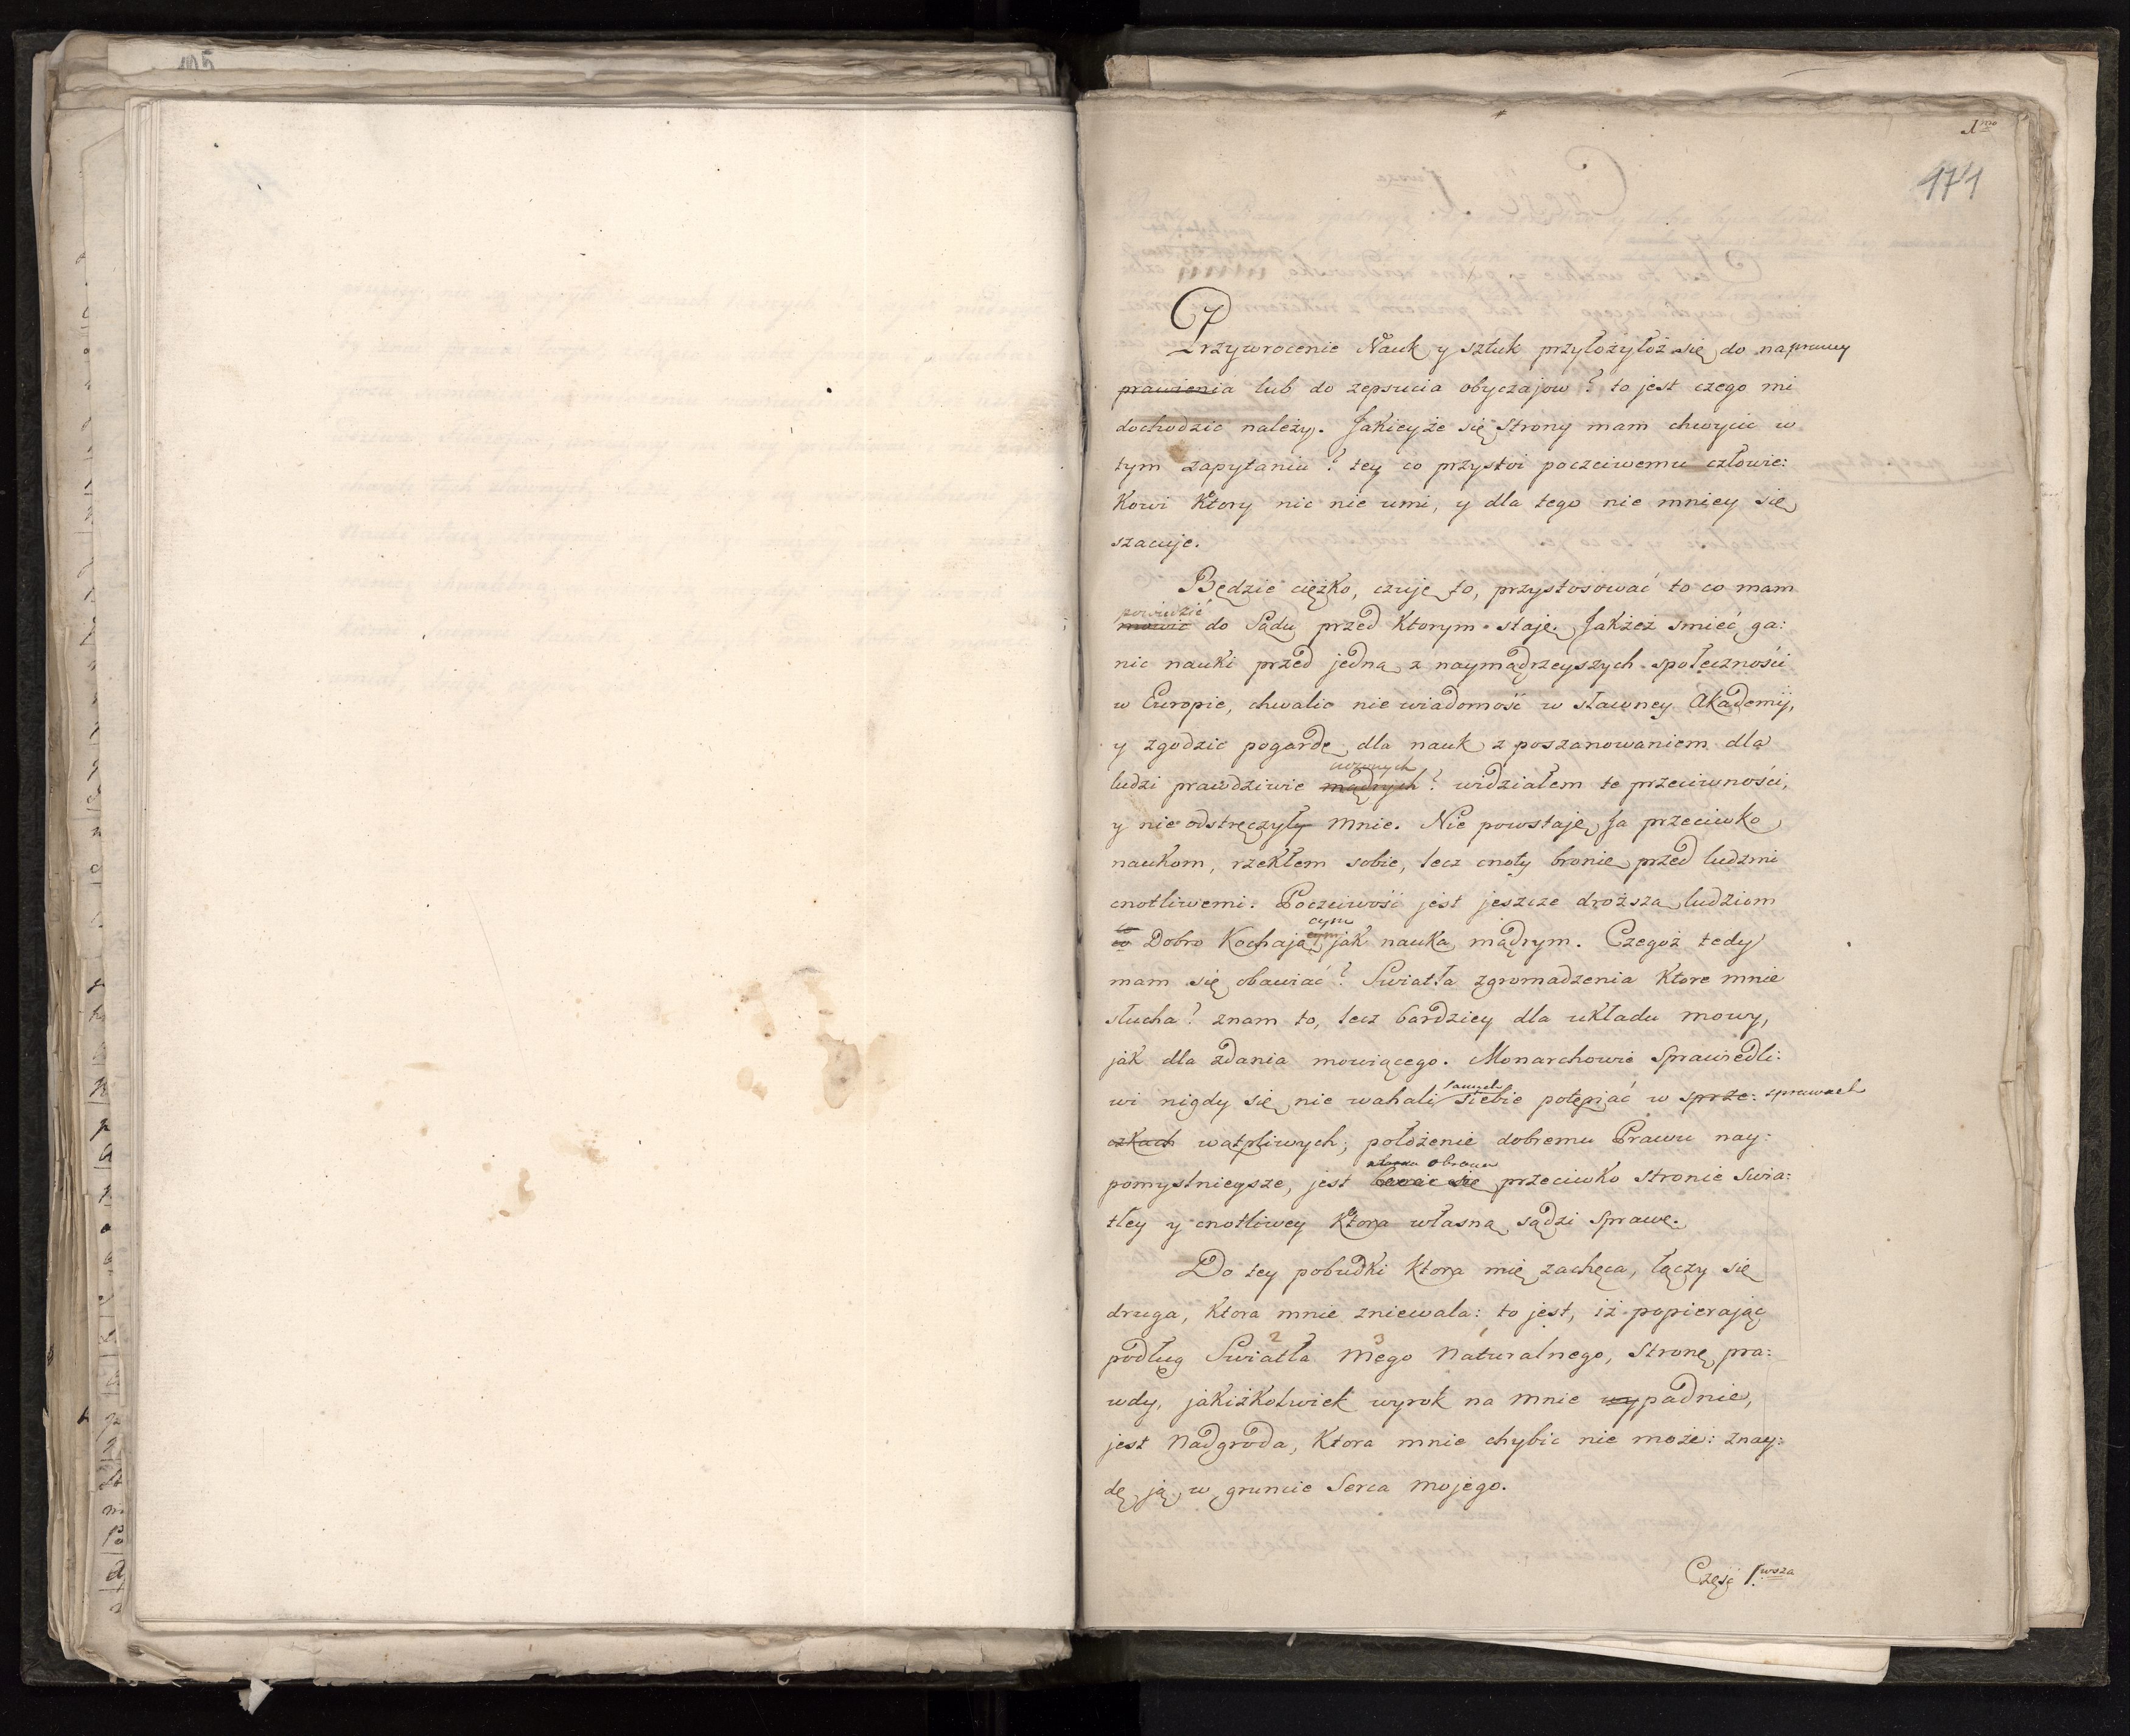 105
1mo
171
Przywrocenie Nauk y sztuk przyłożyłoż się do naprawy
prawienia lub do zepsucia obyczajow? to jest czego mi
dochodzic należy. Jakieyże się strony mam chwycic w
tym zapytaniu? tey co przystoi poczciwemu człowie:
kowi ktory nic nie umi, y dla tego nie mniey się
szacuje.
Będzie ciężko, czuję to, przystosować to co mam
powiedzić
mowic do Sądu przed ktorym staję. Jakżeż smieć ga:
nic nauki przed jedną z naymądrzeyszych społeczności
w Europie, chwalic nie wiadomość w sławney Akademij,
y zgodzic pogardę dla nauk z poszanowaniem dla
uczonych
ludzi prawdziwie mądrych? widziałem te przeciwności,
y nie odstręczyły mnie. Nie powstaję Ja przeciwko
naukom, rzekłem sobie, lecz cnoty bronię przed ludzmi
cnotliwemi. Poczciwość jest jeszcze droższa ludziom
cym
co Dobro Kochają jak nauka mądrym. Czegoż tedy
mam się obawiać? Swiatła zgromadzenia ktore mnie
słucha? znam to, lecz bardziey dla układu mowy,
jak dla zdania mowiącego. Monarchowie Sprawiedli:
samych
wi nigdy się nie wahali siebie potępiać w sprze: sprawach
czkach wątpliwych; położenie dobremu Prawu nay:
obrona
pomyslnieysze, jest się przeciwko stronie Swia:
tłey y cnotliwey ktora własną sądzi sprawę.
Do tey pobudki ktora mię zachęca, łączy się
druga, ktora mnie zniewala: to jest, iż popierając
2 3 1
podług Swiatła mego Naturalnego, Stronę pra:
wdy, jakiżkolwiek wyrok na mnie wypadnie,
jest Nadgroda, ktora mnie chybic nie może: znay:
dę ją w gruncie Serca mojego.
Częsc 1.wsza